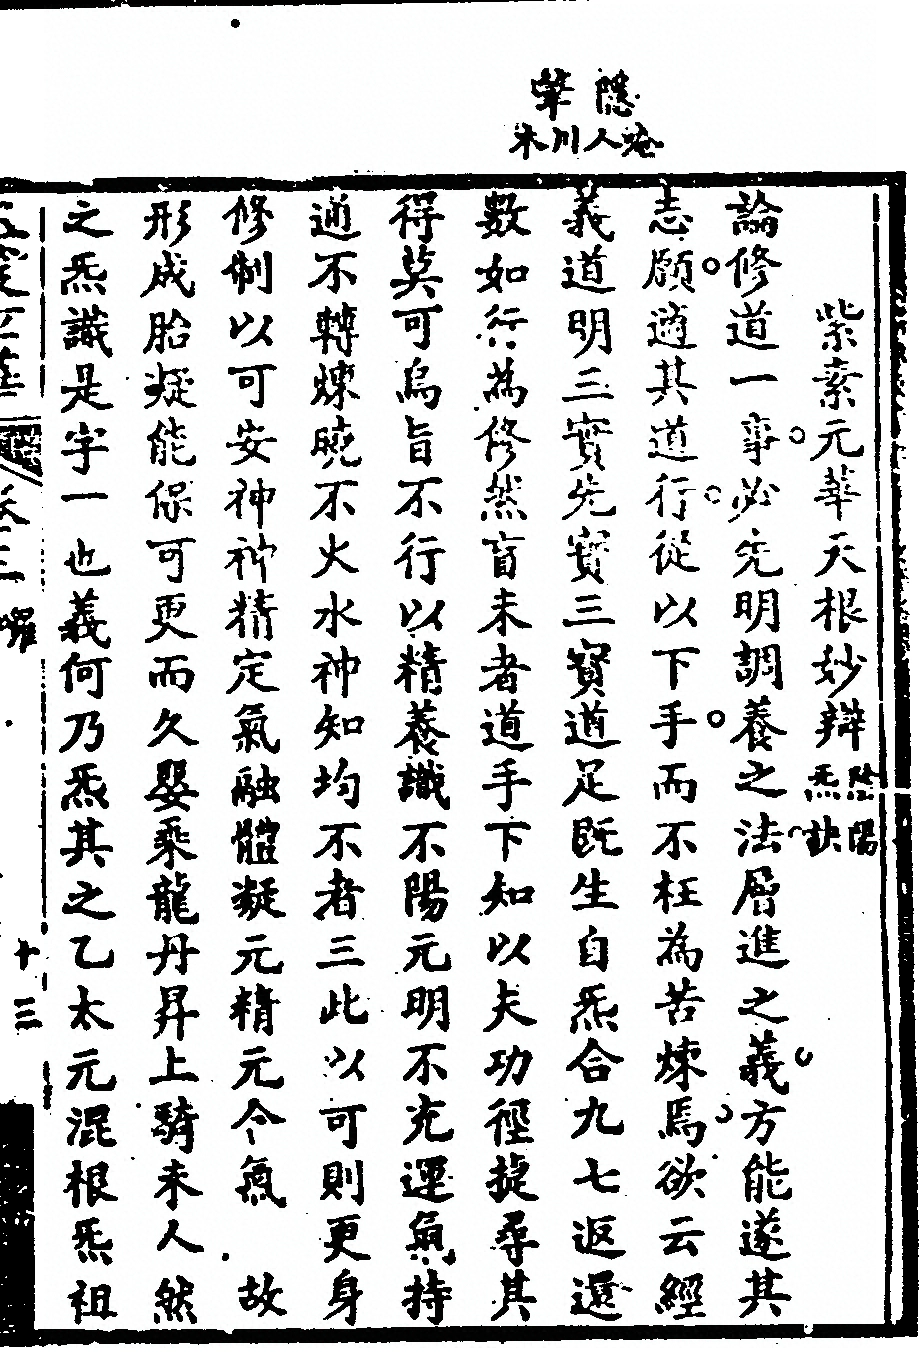 隱肇
人川
紫素元華天根妙辯陰陽炁訣
論修道一事必先明調養之法層進之義方能遂其
志願適其道行從以下手而不枉為苦煉焉欲云經
義道明三寶先寶三寶道足既生自炁合九七返還
數如行為修然盲未者道手下知以夫功徑捷尋其
得莫可烏旨不行以精養識不陽元明不充運氣持
通不轉煉曉不火水神知均不者三此以可則更身
修制以可安神神精定氣融體凝元精元今氣 故
形成胎凝能保可更而久嬰乘龍丹昇上騎未人然
之炁識是字一也義何乃炁其之乙太元混根炁祖
十三